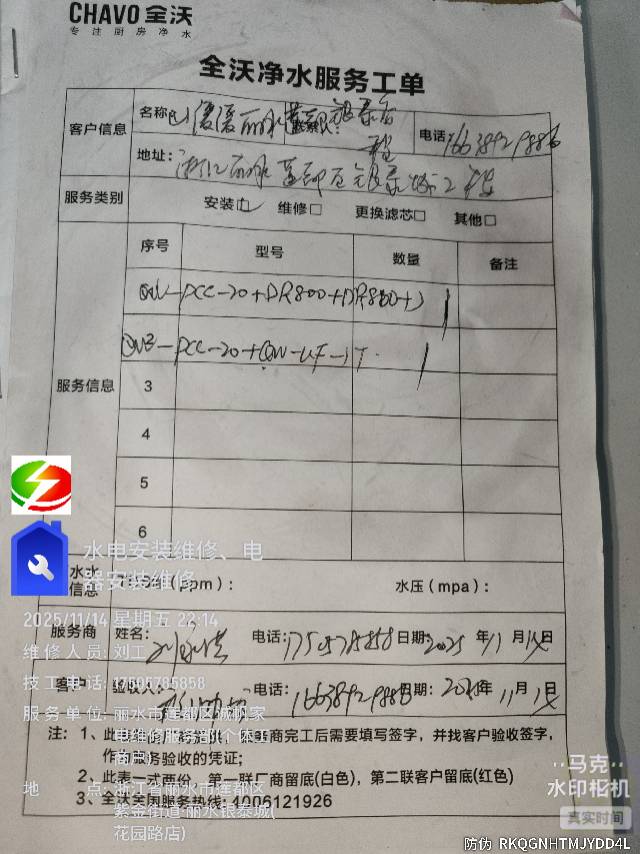 CHAVO 全沃
专注厨房净水
全沃净水服务工单
客户信息
名称
电话: 16638929886
地址: 浙江丽水莲都区
服务类别
安装☑ 维修□ 更换滤芯□ 其他□
服务信息
序号 型号 数量 备注
QW-PCC-20+DR800+DR800+ 1
PCC-20+QW-UF-1T 1
3
4
5
6
水
信息
(ppm): 水压(mpa):
服务商 姓名: 电话: 17505785858 日期: 2025年11月14日
客户 验收人: 电话: 16638929886 日期: 2025年11月14日
注: 1、此表 商完工后需要填写签字，并找客户验收签字，
作 务验收的凭证;
2、此表一式两份，第一联厂商留底(白色)，第二联客户留底(红色)
3、全沃全国服务热线: 4006121926
水电安装维修、电
器安装维修
2025/11/14 星期五 22:14
维修人员: 刘工
技工电话: 17505785858
服务单位: 丽水市莲都区诚帆家
电维修服务部(个体工
商户)
地 点: 浙江省丽水市莲都区
紫金街道·丽水银泰城(
花园路店)
马克
水印相机
真实时间
防伪 RKQGNHTMJYDD4L